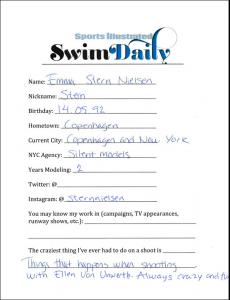 Sports Illustrated
Swim Daily
Name: Emma Stern Nielsen
Nickname: Stern
Birthday: 14.05.92
Hometown: Copenhagen
Current City: Copenhagen and New York
NYC Agency: Silent models
Years Modeling: 2
Twitter: @
Instagram: @ sternnielsen
You may know my work in (campaigns, TV appearances,
runway shows, etc.):
The craziest thing I've ever had to do on a shoot is
Things that happens when shooting
with Ellen Von Unwerth. Always crazy and fun